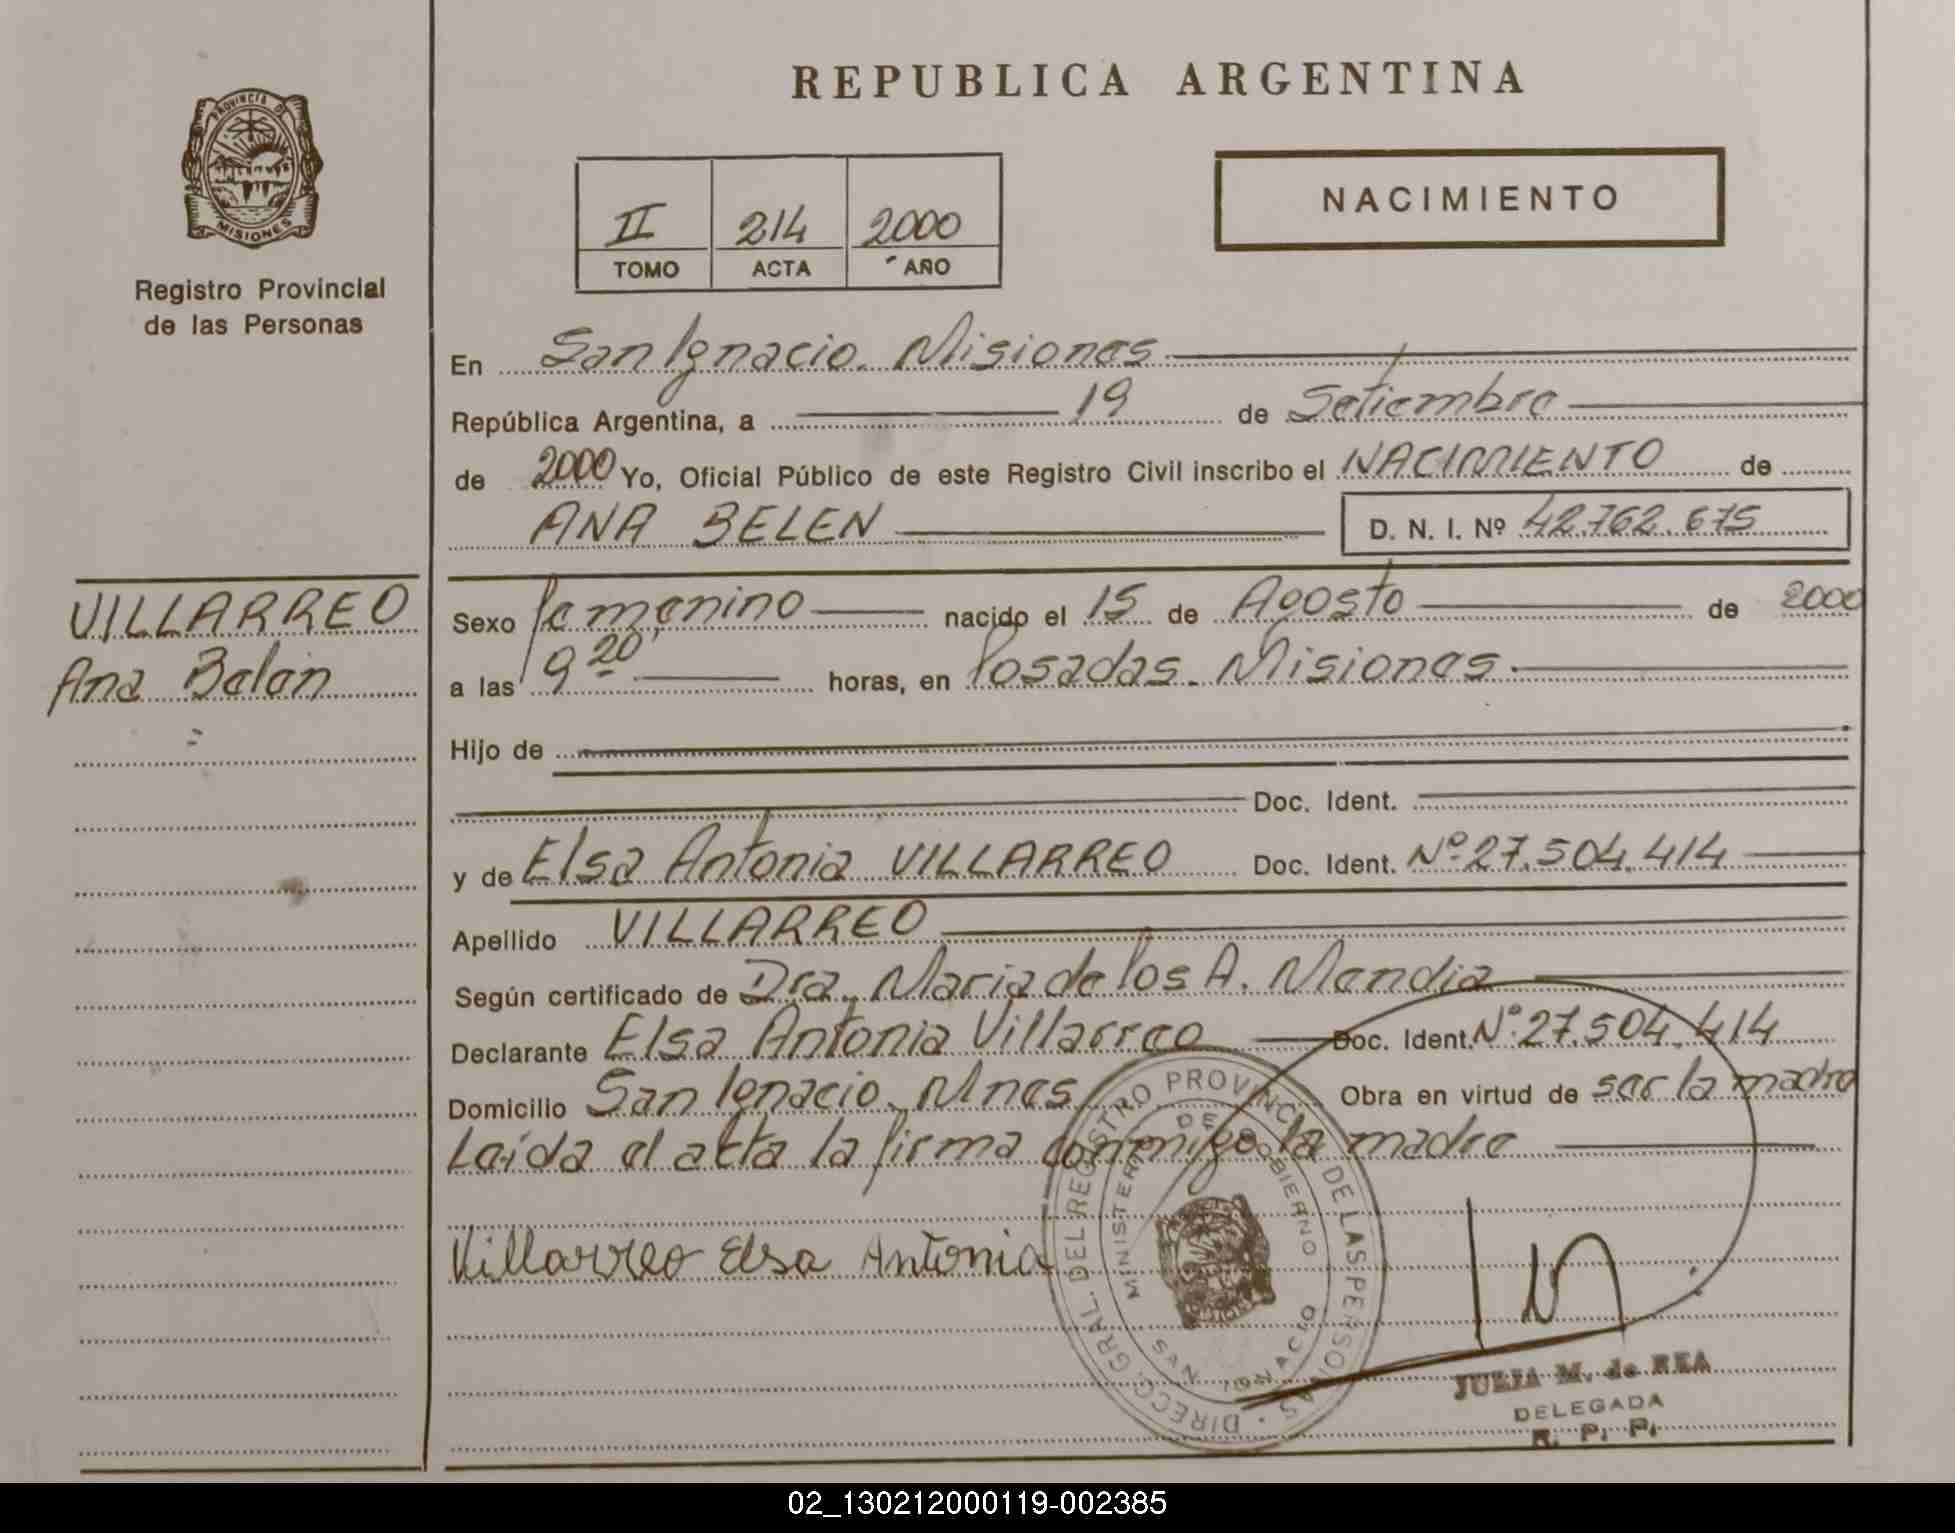 REPUBLICA ARGENTINA
PROVINCIA DE
MISIONES
Registro Provincial
de las Personas
II 214 2000
TOMO ACTA AÑO
NACIMIENTO
En San Ignacio. Misiones
República Argentina, a 19 de Setiembre
de 2000 Yo, Oficial Público de este Registro Civil inscribo el NACIMIENTO de
ANA BELEN D. N. I. Nº 42.762.675
VILLARREO
Ana Belén
Sexo femenino nacido el 15 de Agosto de 2000
a las 9 20' horas, en Posadas. Misiones
Hijo de
Doc. Ident.
y de Elsa Antonia VILLARREO Doc. Ident. Nº 27.504.414
Apellido VILLARREO
Según certificado de Dra. Maria de los A. Mendia
Declarante Elsa Antonia Villarreo Doc. Ident. Nº 27.504.414
Domicilio San Ignacio. Mnes Obra en virtud de ser la madre
Leída el acta la firma conmigo la madre
Villarreo Elsa Antonia
DIRECC. GRAL. DEL REGISTRO PROVINCIAL DE LAS PERSONAS
MINISTERIO DE GOBIERNO
SAN IGNACIO
JULIA M. de REA
DELEGADA
R. P. P.
02_130212000119-002385